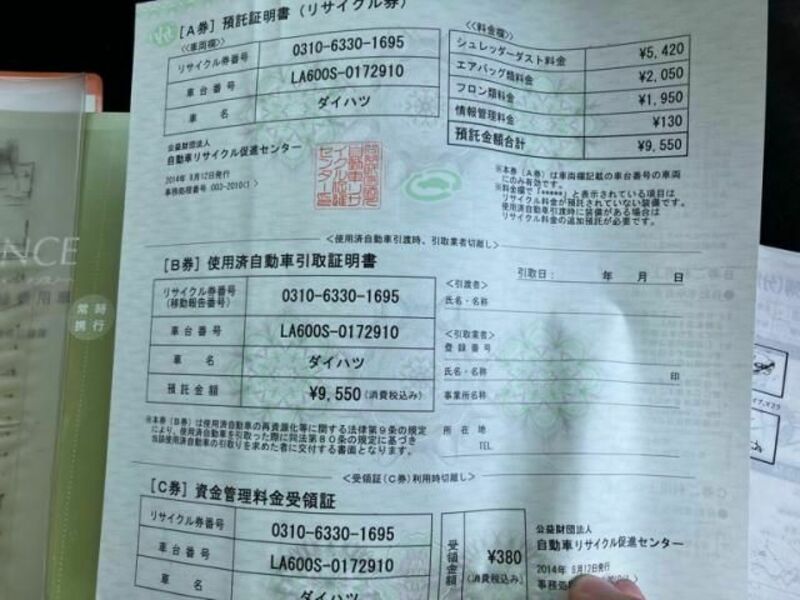 [A券] 預託証明書(リサイクル券)
<車両欄>
リサイクル券番号 0310-6330-1695
車台番号 LA600S-0172910
車名 ダイハツ
<料金欄>
シュレッダーダスト料金 ¥5,420
エアバッグ類料金 ¥2,050
フロン類料金 ¥1,950
情報管理料金 ¥130
預託金額合計 ¥9,550
公益財団法人
自動車リサイクル促進センター
2014年 8月12日発行
※本券(A券)は車両欄記載の車台番号の車両
にのみ有効です。
※料金欄で「*****」と表示されている項目は
リサイクル料金が預託されていない装備です。
使用済自動車引渡時に装備がある場合は
リサイクル料金の追加預託が必要です。
<使用済自動車引渡時、引取業者切離し>
[B券] 使用済自動車引取証明書
引取日: 年 月 日
リサイクル券番号
(移動報告番号) 0310-6330-1695
車台番号 LA600S-0172910
車名 ダイハツ
預託金額 ¥9,550(消費税込み)
<引渡者>
氏名・名称
<引取業者>
登録番号
氏名・名称 印
事業所名称
所在地
TEL
※本券(B券)は使用済自動車の再資源化等に関する法律第9条の規定
により、使用済自動車を引取った際に同法第80条の規定に基づき
当該使用済自動車の引取りを求めた者に交付する書面となります。
<受領証(C券)利用時切離し>
[C券] 資金管理料金受領証
リサイクル券番号 0310-6330-1695
車台番号 LA600S-0172910
車名 ダイハツ
受領金額 ¥380
(消費税込み)
公益財団法人
自動車リサイクル促進センター
2014年 8月12日発行
NCE
常時
携行